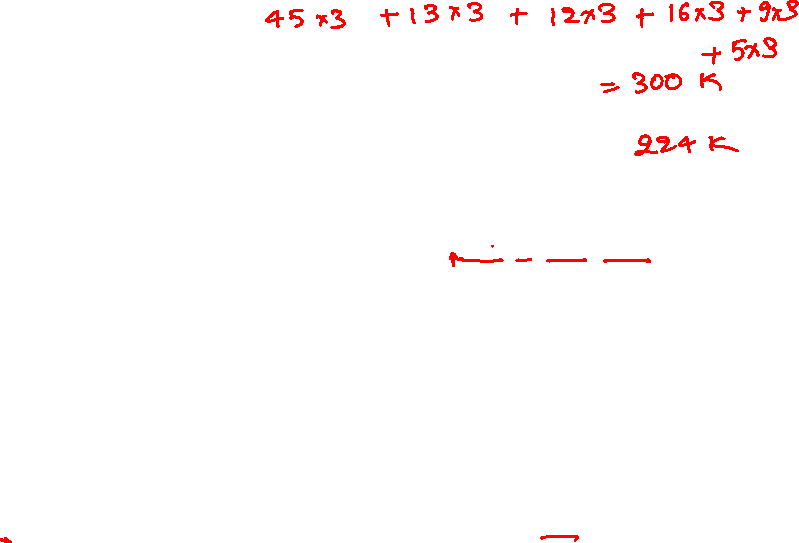 45 x 3 + 13 x 3 + 12 x 3 + 16 x 3 + 9 x 3
+ 5 x 3
= 300 K
224 K